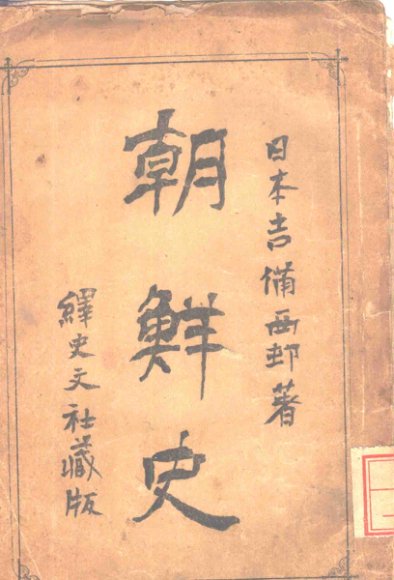 日本吉備西邨著
朝鮮史
繹史文社藏版